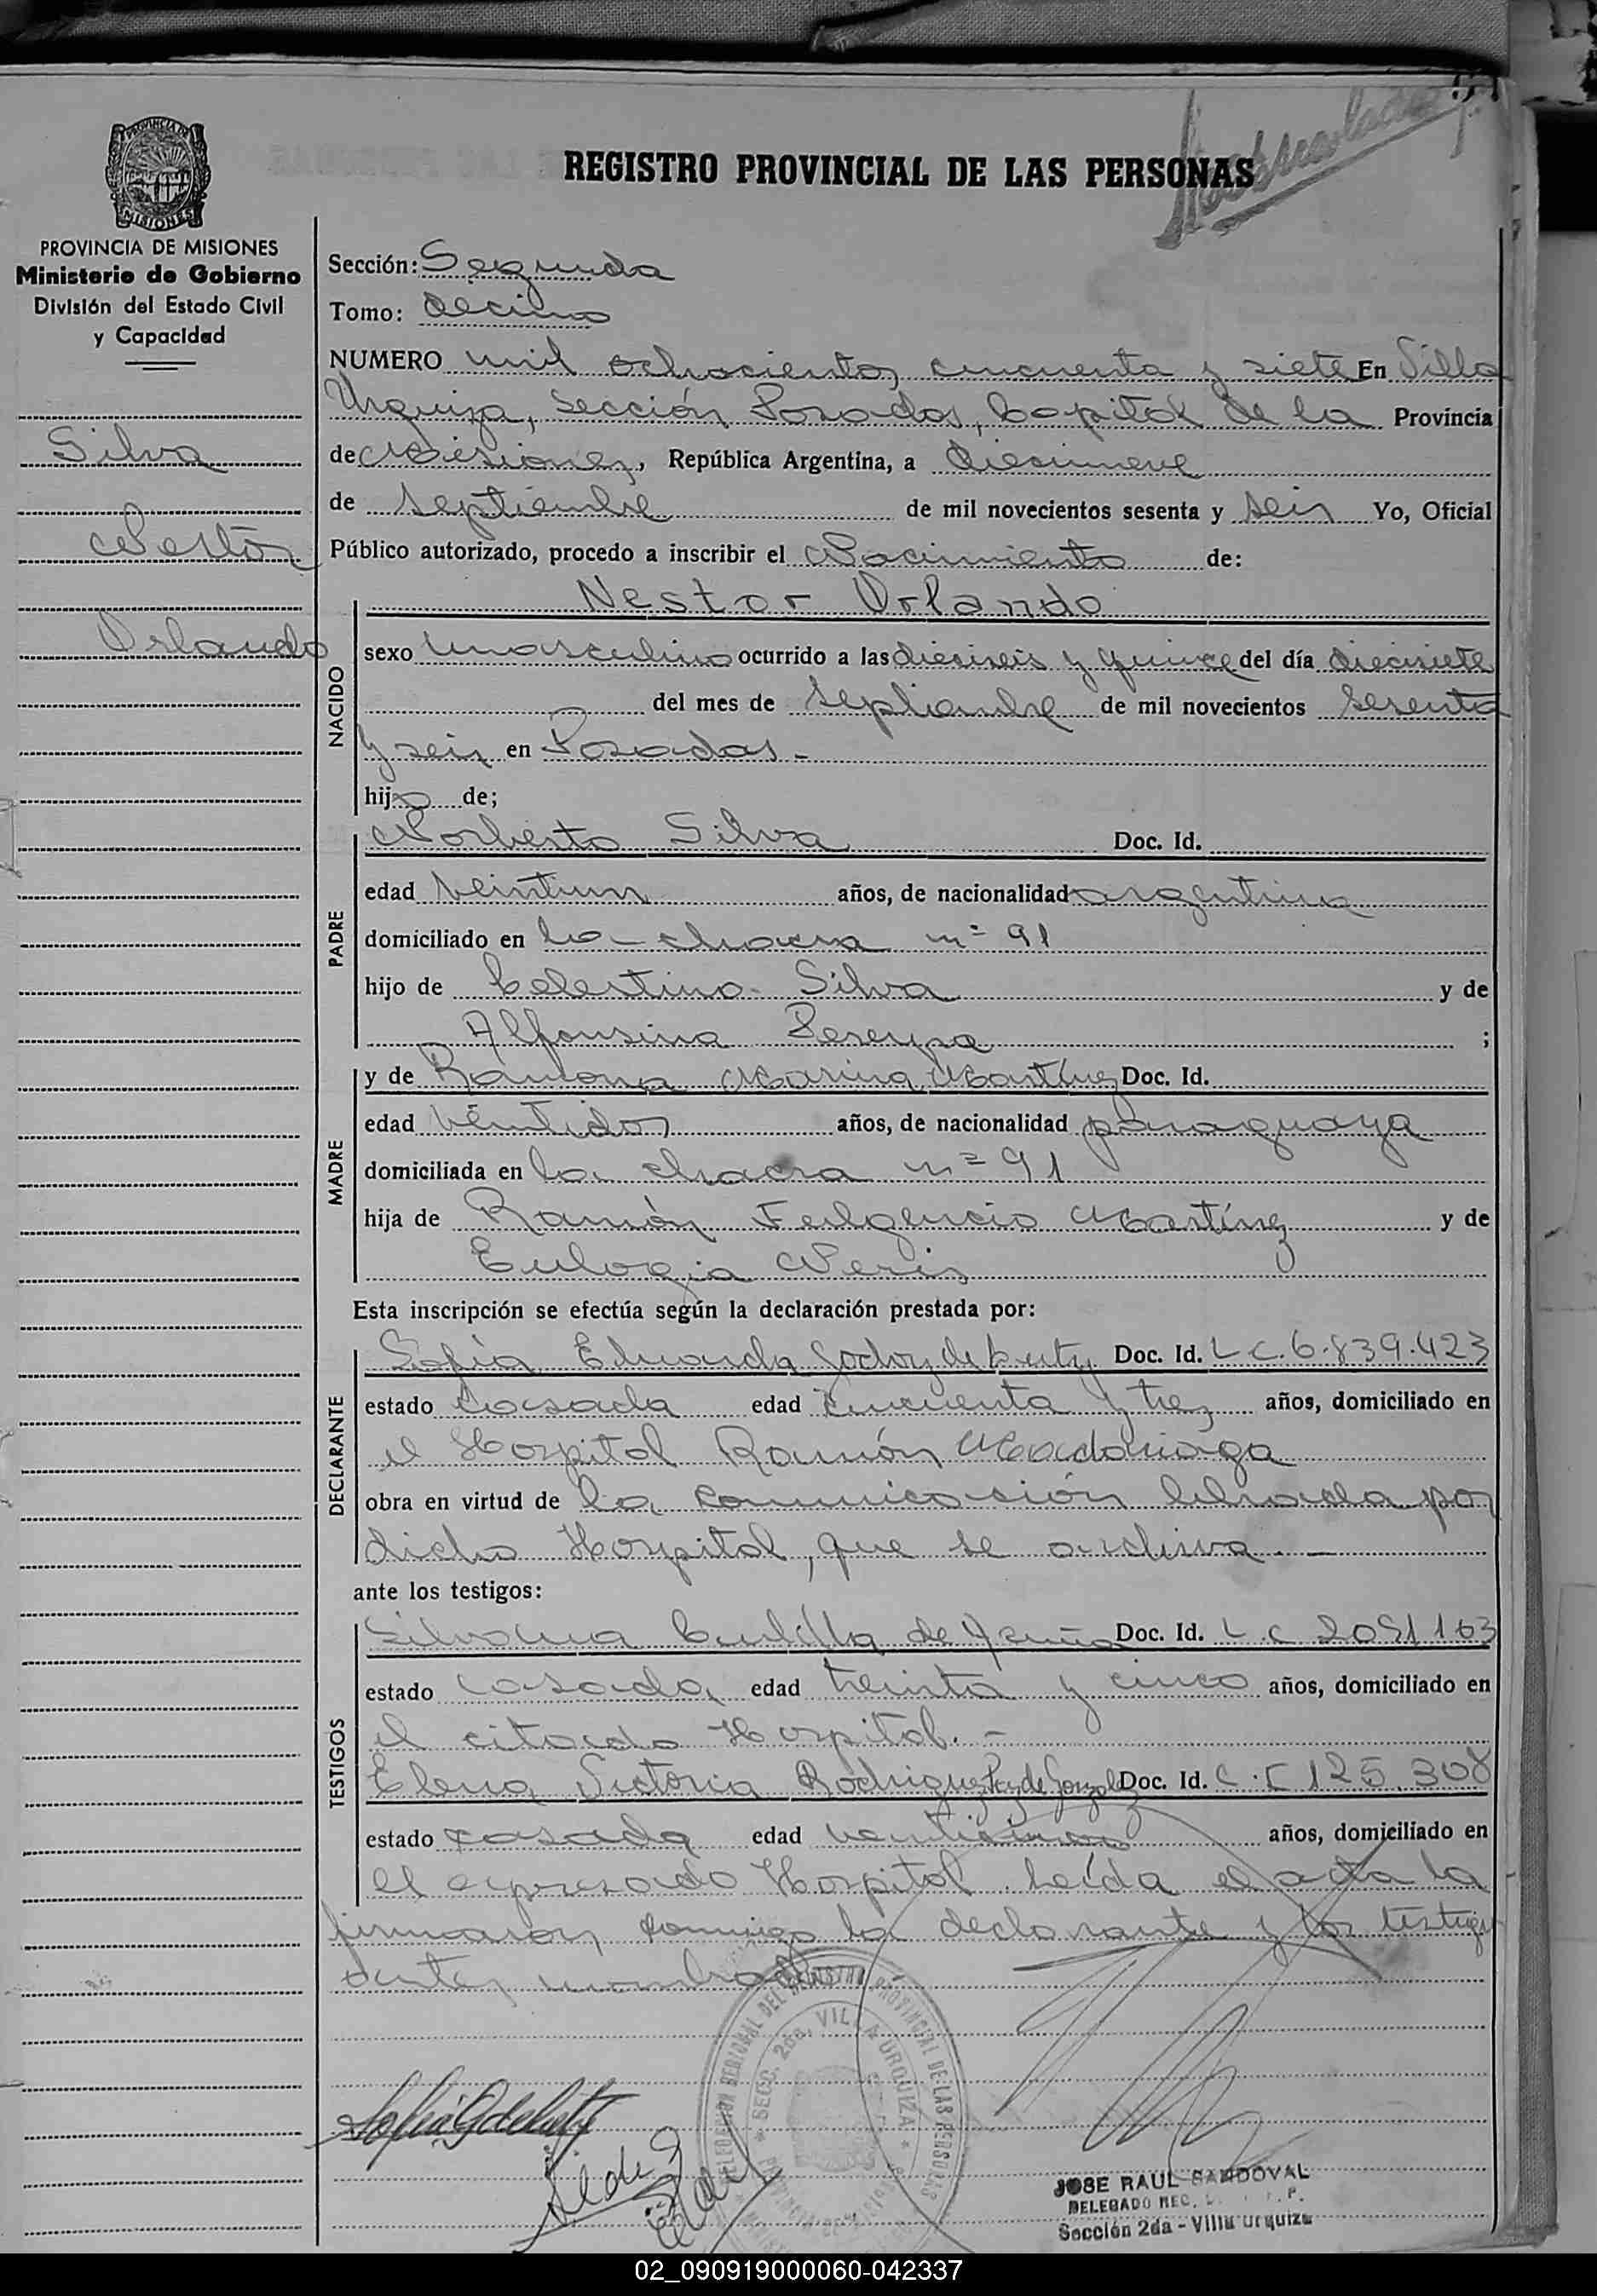 REGISTRO PROVINCIAL DE LAS PERSONAS
PROVINCIA DE MISIONES
Ministerio de Gobierno
División del Estado Civil
y Capacidad
Silva
Nestor
Orlando
Sección: Segunda
Tomo: decimo
NUMERO mil ochocientos cincuenta y siete En Villa
Urquiza, sección Posadas, Capital de la Provincia
de Misiones, República Argentina, a diecinueve
de septiembre de mil novecientos sesenta y seis Yo, Oficial
Público autorizado, procedo a inscribir el Nacimiento de:
NACIDO
Nestor Orlando
sexo masculino ocurrido a las dieciseis y quince del día diecisiete
del mes de septiembre de mil novecientos sesenta
y seis en Posadas.-
hijo de;
PADRE
Norberto Silva Doc. Id.
edad veintiun años, de nacionalidad argentina
domiciliado en la chacra nº 91
hijo de Celestino Silva y de
Alfonsina Pereyra ;
MADRE
y de Ramona Marina Martínez Doc. Id.
edad veintidos años, de nacionalidad paraguaya
domiciliada en la chacra nº 91
hija de Ramón Fulgencio Martínez y de
Eulogia Neris
Esta inscripción se efectúa según la declaración prestada por:
DECLARANTE
Sofía Eduarda Godoy de Doc. Id. L C. 6.839.423
estado Casada edad cincuenta y tres años, domiciliado en
el Hospital Ramón Madariaga
obra en virtud de la comunicación librada por
dicho Hospital, que se archiva.-
ante los testigos:
TESTIGOS
Silvana de Doc. Id. L C 2091163
estado casada edad treinta y cinco años, domiciliado en
el citado Hospital.-
Elena Victoria Rodriguez de Gonzalez Doc. Id. C. I 125.308
estado casada edad años, domiciliado en
el expresado Hospital. Leída el acta la
firmaron conmigo la declarante y los testigos
antes nombrados
DELEGACION REGIONAL DEL REGISTRO PROVINCIAL DE LAS PERSONAS
SECC. 2da. VILLA URQUIZA
JOSE RAUL SANDOVAL
DELEGADO REG.
Sección 2da - Villa Urquiza
02_090919000060-042337